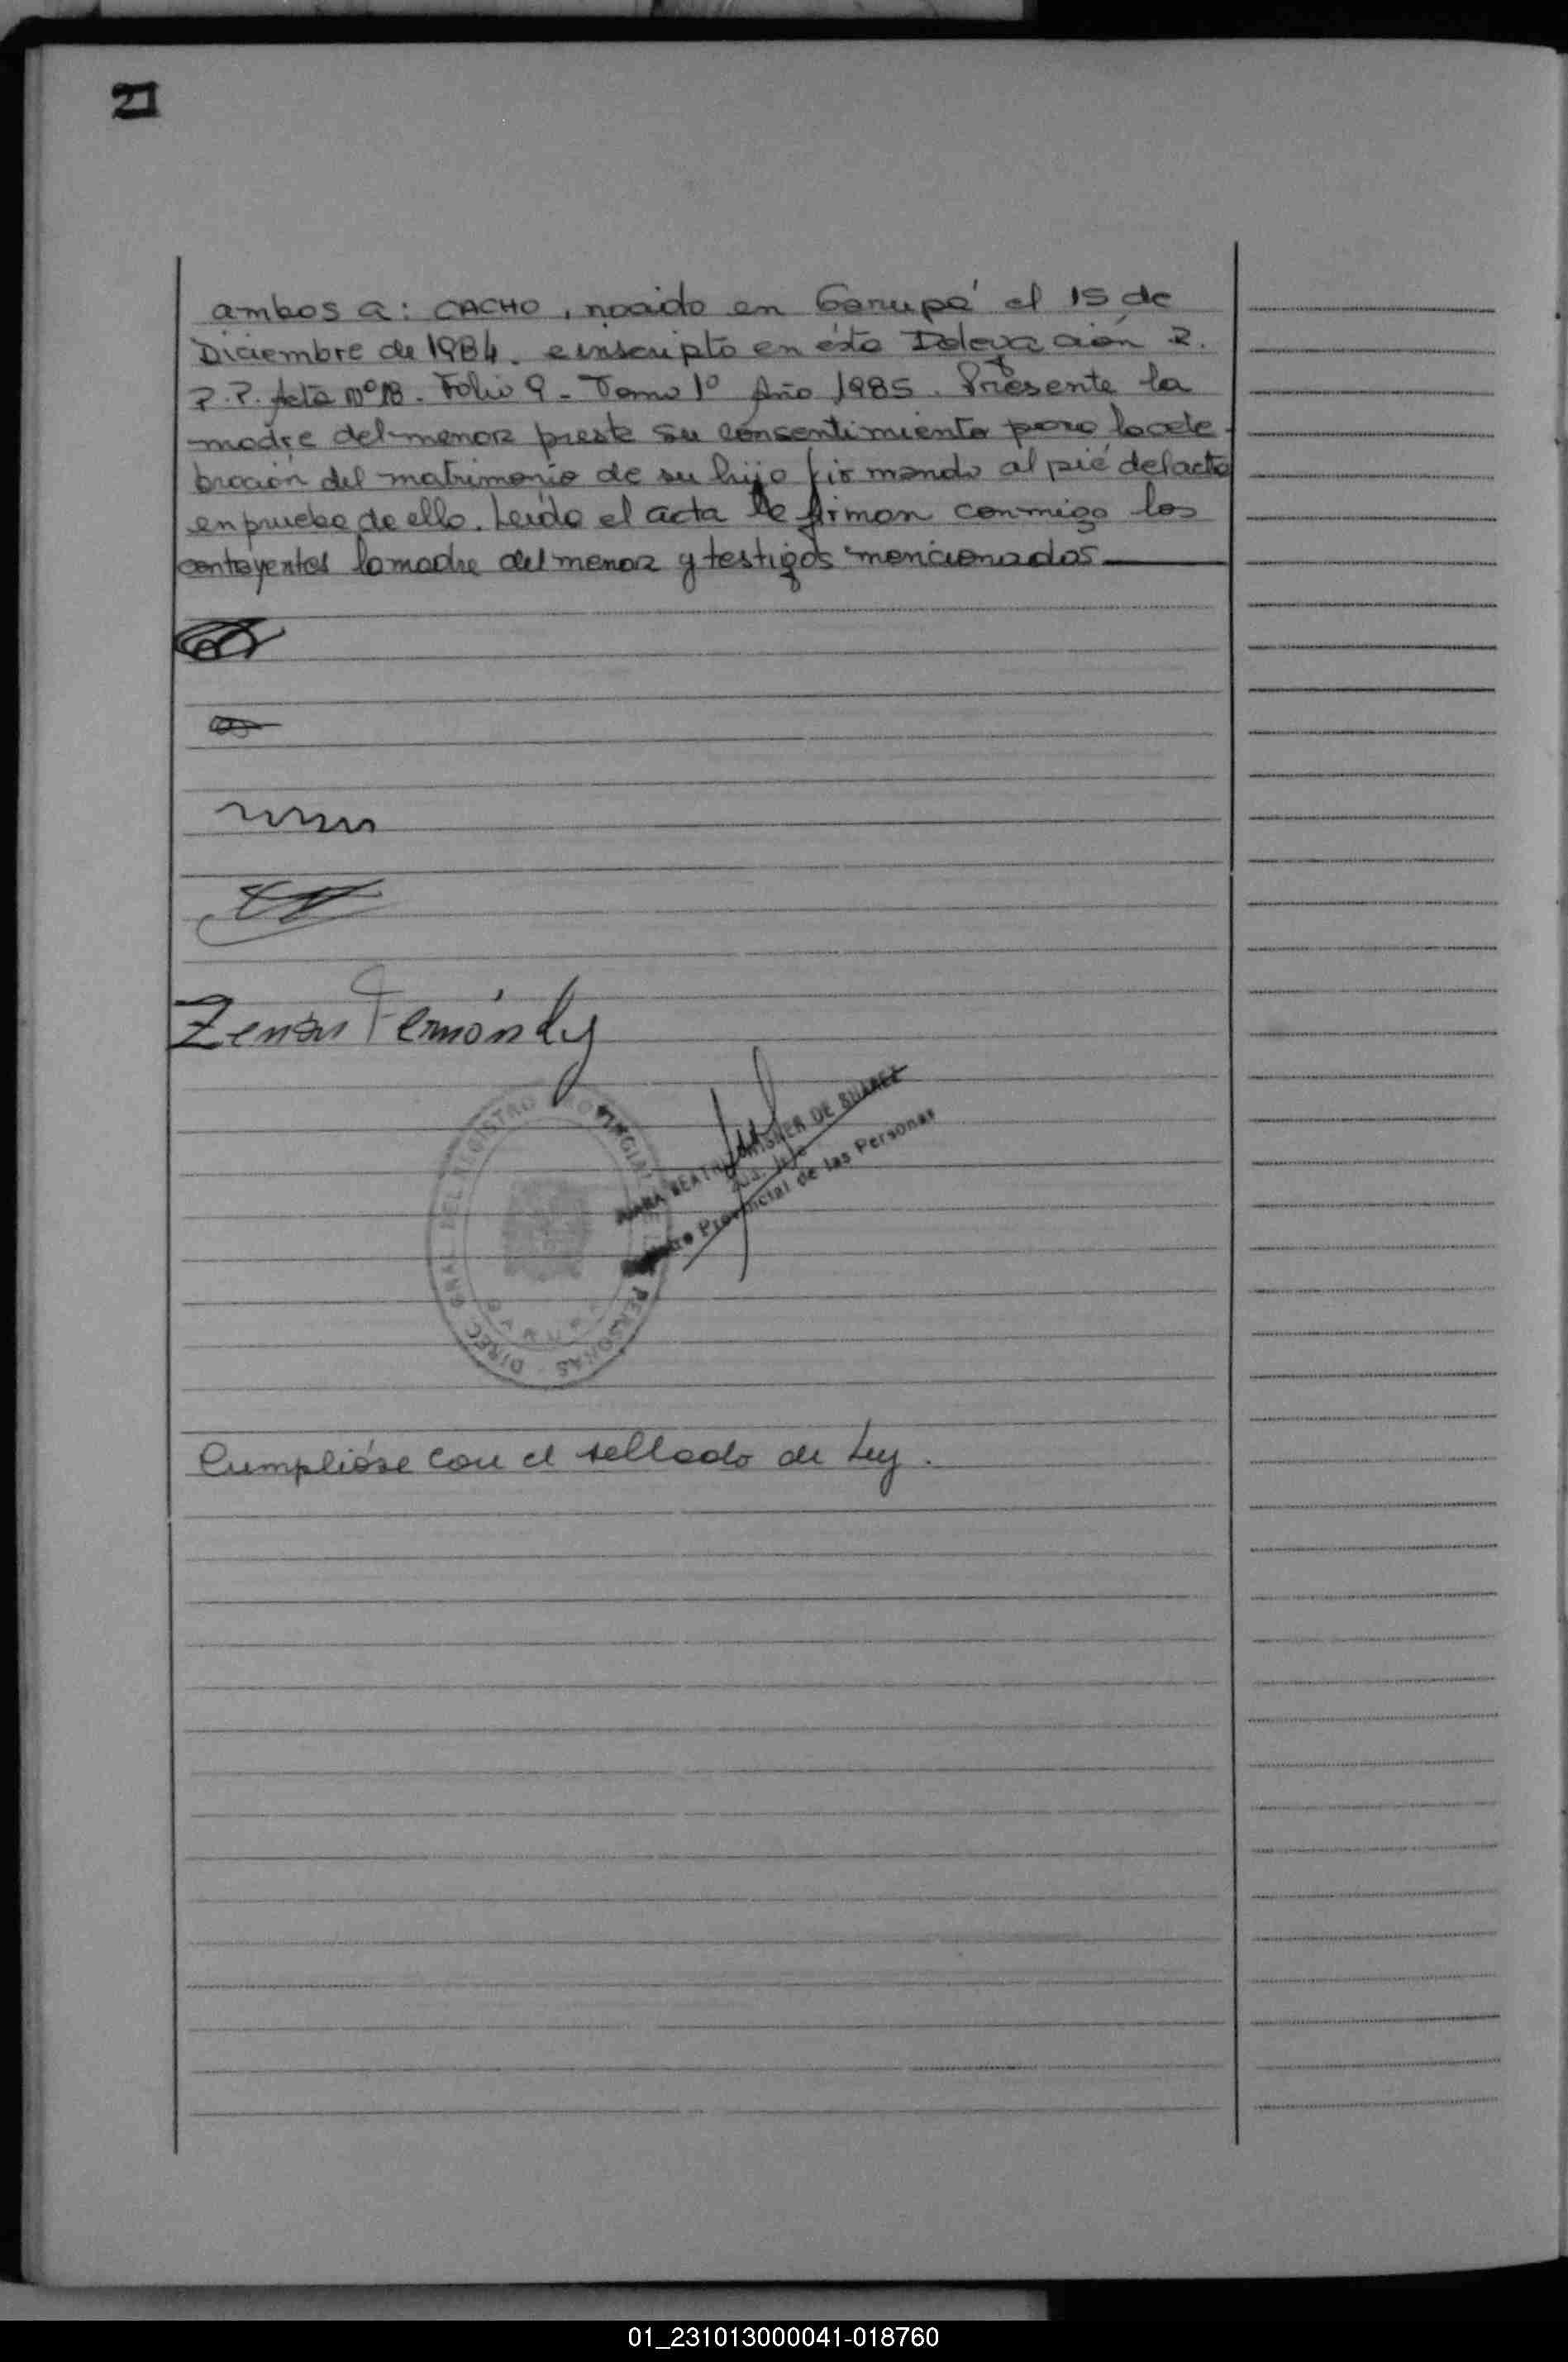 21
ambos a: CACHO, nacido en Garupá el 15 de
Diciembre de 1984. e inscripto en ésta Delegación R.
P.P. Acta Nº 18. Folio 9 - Tomo 1º Año 1985. Presente la
madre del menor preste su consentimiento para la cele-
bración del matrimonio de su hijo firmando al pié del acta
en prueba de ello. Leída el acta la firman conmigo los
contrayentes la madre del menor y testigos mencionados
Zenón Fernández
DIREC. GRAL. DEL REGISTRO PROVINCIAL PERSONAS
GARUPA
BEATRIZ DE SUAREZ
Provincial de las Personas
Cumplióse con el sellado de Ley.
01_231013000041-018760